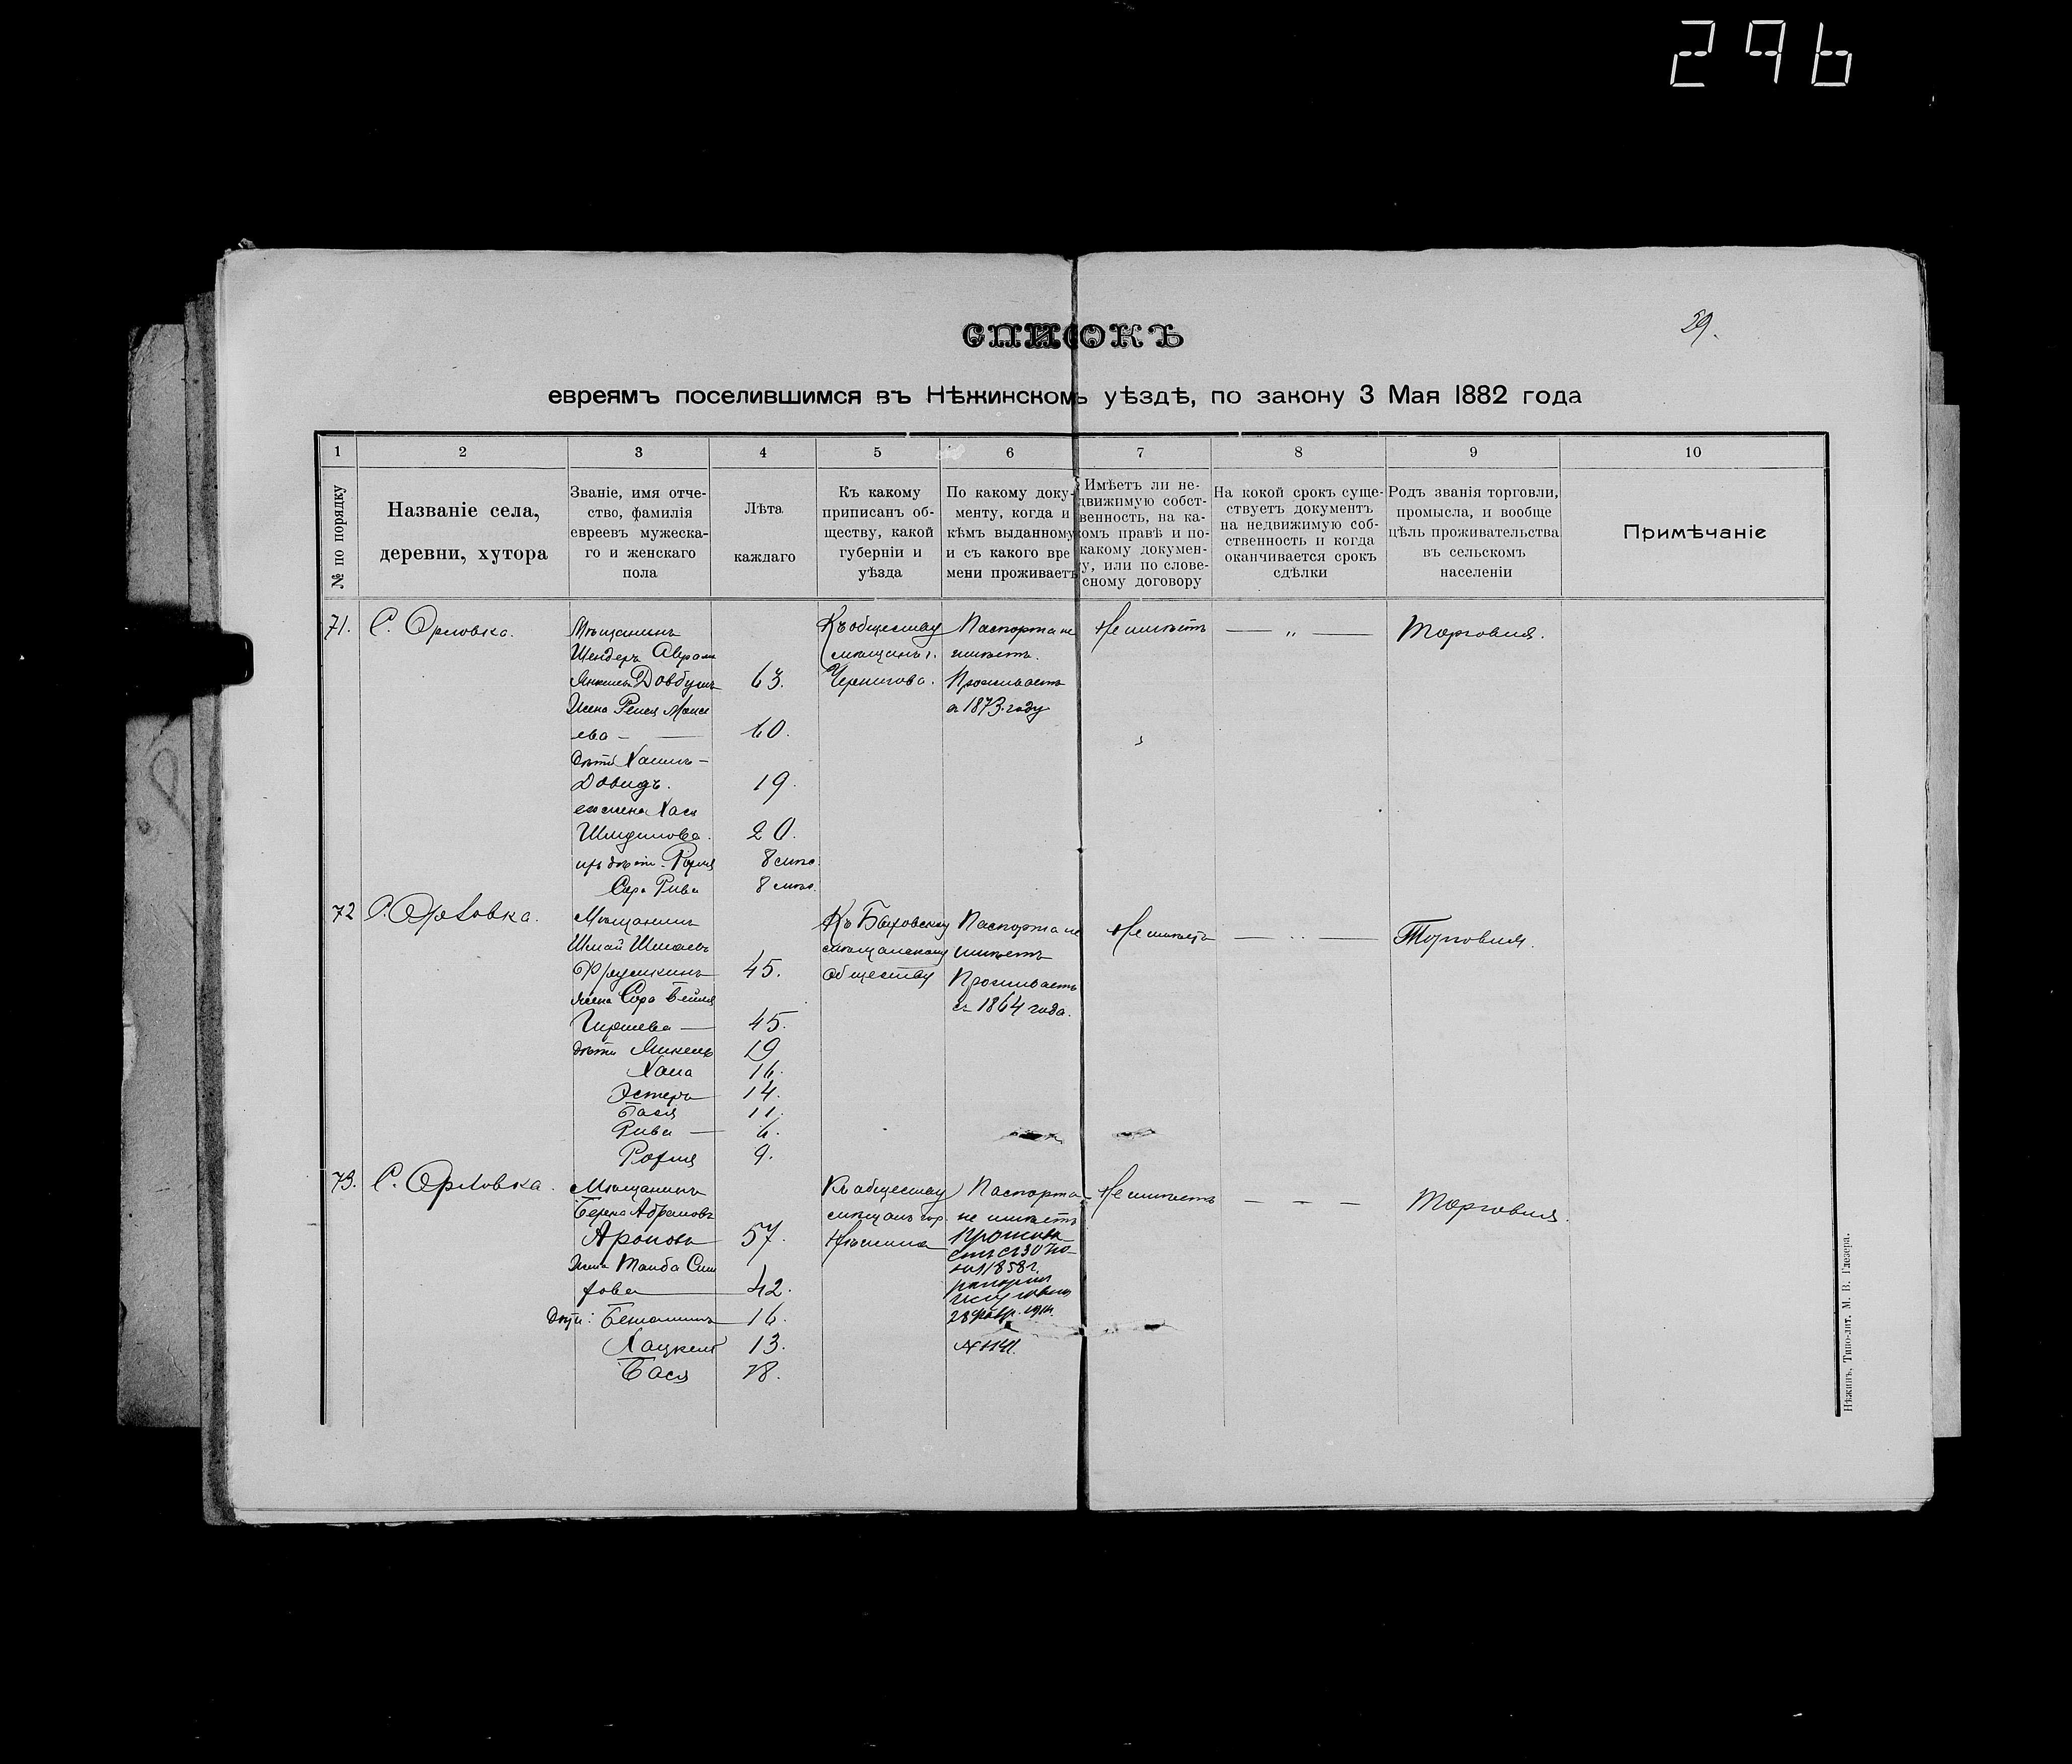 296
59.
СПИСОКЪ
евреямъ поселившимся въ Нѣжинскомъ уѣздѣ, по закону 3 Мая 1882 года
1 2 3 4 5 6 7 8 9 10
№ по порядку
Названіе села,
деревни, хутора
Званіе, имя отче-
ство, фамилія
евреевъ мужеска-
го и женскаго
пола
Лѣта
каждаго
Къ какому
приписанъ об-
ществу, какой
губерніи и
уѣзда
По какому доку-
менту, когда и
кѣмъ выданному
и съ какого вре
мени проживаетъ
Имѣетъ ли не-
движимую собст-
венность, на ка-
комъ правѣ и по-
какому докумен-
у, или по слове-
сному договору
На кокой срокъ суще-
ствуетъ документъ
на недвижимую соб-
ственность и когда
оканчивается срокъ
сдѣлки
Родъ званія торговли,
промысла, и вообще
цѣль проживательства
въ сельскомъ
населеніи
Примѣчаніе
71.
С. Орловка.
Мѣщанинъ
Шендеръ Аврам
Янкель Довбушъ 63.
Жена Рейся Мовсе
ева - 60.
дѣти Хаимъ-
Довидъ. 19.
его жена Хася
20.
ихъ дѣти 8
Сора Рива 8
Къ обществу
мѣщанъ г.
Чернигова.
Паспорта не
имѣетъ.
Проживаетъ
съ 1873 году
Не имѣетъ
— „ —
Торговля.
72
С. Орловка.
Мѣщанинъ
Шмай
Фрумкинъ 45.
жена Сора Бейля
Гиршева — 45.
дѣти 19
Хана 16.
Эстеръ 14.
Бася 11.
Рива — 6.
9.
Къ Быховскому
мѣщанскому
обществу
Паспорта не
имѣетъ
Проживаетъ
съ 1864 года.
Не имѣетъ
Торговля.
73.
С. Орловка.
Мѣщанинъ
Берка Абрамовъ
Ароновъ 57.
Жена Тайба
42.
Дѣти: Беньаминъ 16.
Хацкель 13.
Бася 18.
Къ обществу
мѣщанъ гор.
Нѣжина
Паспорта
не имѣетъ
1858 г.
Не имѣетъ
— — —
Торговля.
Нѣжинъ, Типо-лит. М. В. Глезера.